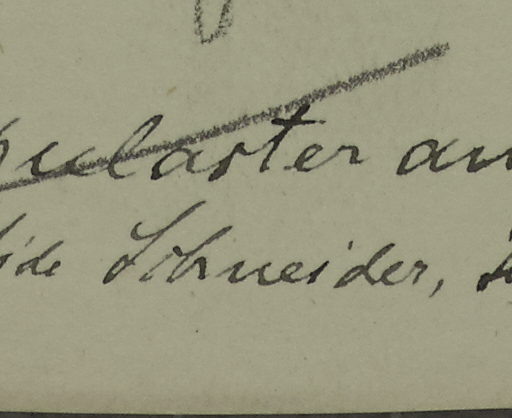 ulaster an
ide Schneider,